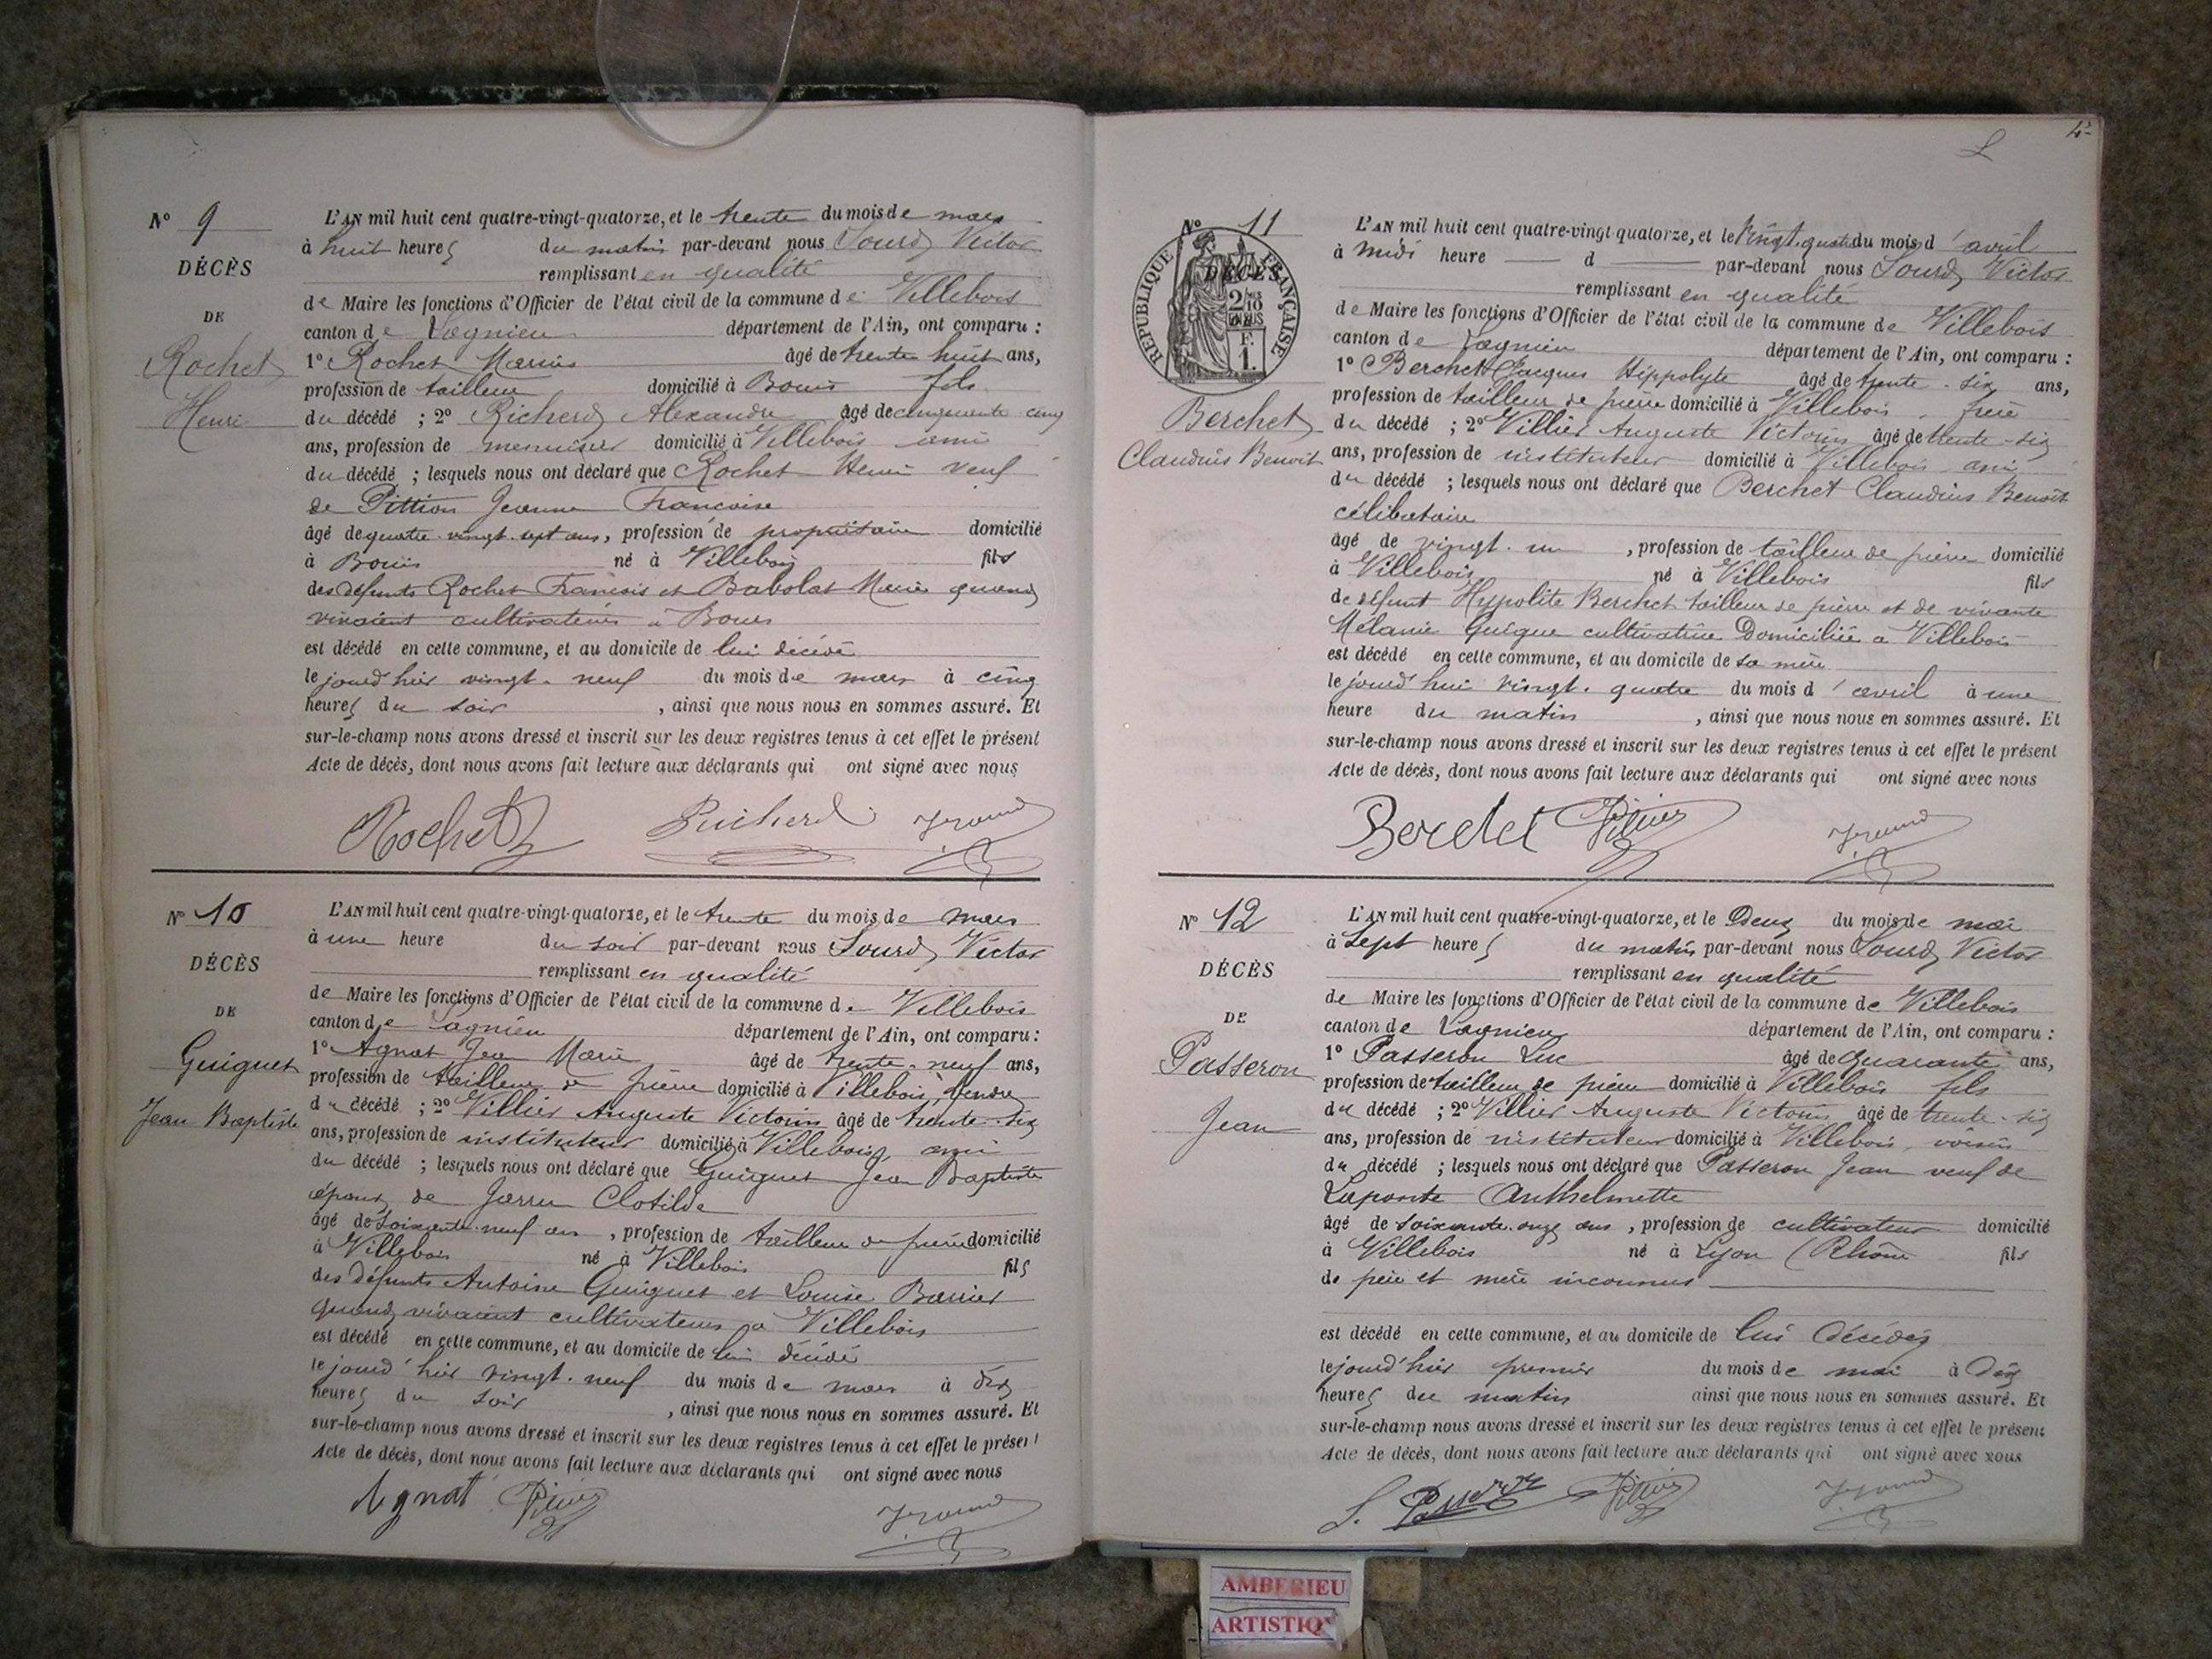 N° 9
DÉCÈS
DE
Rochet
Henri
L'AN mil huit cent quatre-vingt-quatorze, et le trente du mois de mars
à huit heures du matin par-devant nous Sourd Victor
remplissant en qualité
de Maire les fonctions d'Officier de l'état civil de la commune de Villebois
canton de Lagnieu département de l'Ain, ont comparu :
1° Rochet Marius âgé de trente huit ans,
profession de tailleur domicilié à Bouis fils
du décédé ; 2° Richerd Alexandre âgé de cinquante cinq
ans, profession de menuisier domicilié à Villebois ami
du décédé ; lesquels nous ont déclaré que Rochet Henri veuf
de Pittion Jeanne Françoise
âgé de quatre-vingt-sept ans, profession de propriétaire domicilié
à Bouis né à Villebois fils
des défunts Rochet François et Babolat Marie quand
vivaient cultivateurs à Bouis
est décédé en cette commune, et au domicile de lui décédé
le jourd'hier vingt-neuf du mois de mars à cinq
heures du soir , ainsi que nous nous en sommes assuré. Et
sur-le-champ nous avons dressé et inscrit sur les deux registres tenus à cet effet le présent
Acte de décès, dont nous avons fait lecture aux déclarants qui ont signé avec nous
Rochet Richerd
N° 10
DÉCÈS
DE
Guiguet
Jean Baptiste
L'AN mil huit cent quatre-vingt-quatorze, et le trente du mois de mars
à une heure du soir par-devant nous Sourd Victor
remplissant en qualité
de Maire les fonctions d'Officier de l'état civil de la commune de Villebois
canton de Lagnieu département de l'Ain, ont comparu :
1° Agnat Jean Marie âgé de trente-neuf ans,
profession de tailleur de pierre domicilié à Villebois, gendre
du décédé ; 2° Villier Auguste Victorin âgé de trente-six
ans, profession de instituteur domicilié à Villebois, ami
du décédé ; lesquels nous ont déclaré que Guiguet Jean Baptiste
époux de Jarru Clotilde
âgé de soixante-neuf ans , profession de tailleur de pierre domicilié
à Villebois né à Villebois fils
des défunts Antoine Guiguet et Louise Barrier
quand vivaient cultivateurs à Villebois
est décédé en cette commune, et au domicile de lui décédé
le jourd'hier vingt-neuf du mois de mars à dix
heures du soir , ainsi que nous nous en sommes assuré. Et
sur-le-champ nous avons dressé et inscrit sur les deux registres tenus à cet effet le présent
Acte de décès, dont nous avons fait lecture aux déclarants qui ont signé avec nous
Agnat Villier
4
N° 11
DÉCÈS
RÉPUBLIQUE FRANÇAISE
Berchet
Claudius Benoit
L'AN mil huit cent quatre-vingt quatorze, et le Vingt-quatre du mois d'avril
à midi heure d par-devant nous Sourd Victor
remplissant en qualité
de Maire les fonctions d'Officier de l'état civil de la commune de Villebois
canton de Lagnieu département de l'Ain, ont comparu :
1° Berchet Jacques Hippolyte âgé de trente-six ans,
profession de tailleur de pierre domicilié à Villebois, frère
du décédé ; 2° Villier Auguste Victorin âgé de trente-six
ans, profession de instituteur domicilié à Villebois ami
du décédé ; lesquels nous ont déclaré que Berchet Claudius Benoit
célibataire
âgé de vingt-un , profession de tailleur de pierre domicilié
à Villebois né à Villebois fils
de défunt Hypolite Berchet tailleur de pierre et de vivante
Mélanie Guigue cultivatrice Domiciliée à Villebois
est décédé en cette commune, et au domicile de sa mère
le jourd'hui vingt-quatre du mois d'avril à une
heure du matin , ainsi que nous nous en sommes assuré. Et
sur-le-champ nous avons dressé et inscrit sur les deux registres tenus à cet effet le présent
Acte de décès, dont nous avons fait lecture aux déclarants qui ont signé avec nous
Berchet Villier
N° 12
DÉCÈS
DE
Passeron
Jean
L'AN mil huit cent quatre-vingt-quatorze, et le Deux du mois de mai
à Sept heures du matin par-devant nous Sourd Victor
remplissant en qualité
de Maire les fonctions d'Officier de l'état civil de la commune de Villebois
canton de Lagnieu département de l'Ain, ont comparu :
1° Passeron Luc âgé de Quarante ans,
profession de tailleur de pierre domicilié à Villebois fils
du décédé ; 2° Villier Auguste Victorin âgé de trente-six
ans, profession de instituteur domicilié à Villebois, voisin
du décédé ; lesquels nous ont déclaré que Passeron Jean veuf de
Laponte Anthelmette
âgé de soixante-onze ans , profession de cultivateur domicilié
à Villebois né à Lyon (Rhône fils
de père et mère inconnus
est décédé en cette commune, et au domicile de lui décédé
le jourd'hier premier du mois de mai à dix
heures du matin ainsi que nous nous en sommes assuré. Et
sur-le-champ nous avons dressé et inscrit sur les deux registres tenus à cet effet le présent
Acte de décès, dont nous avons fait lecture aux déclarants qui ont signé avec nous
L. Passeron Villier
AMBERIEU
ARTISTIQ